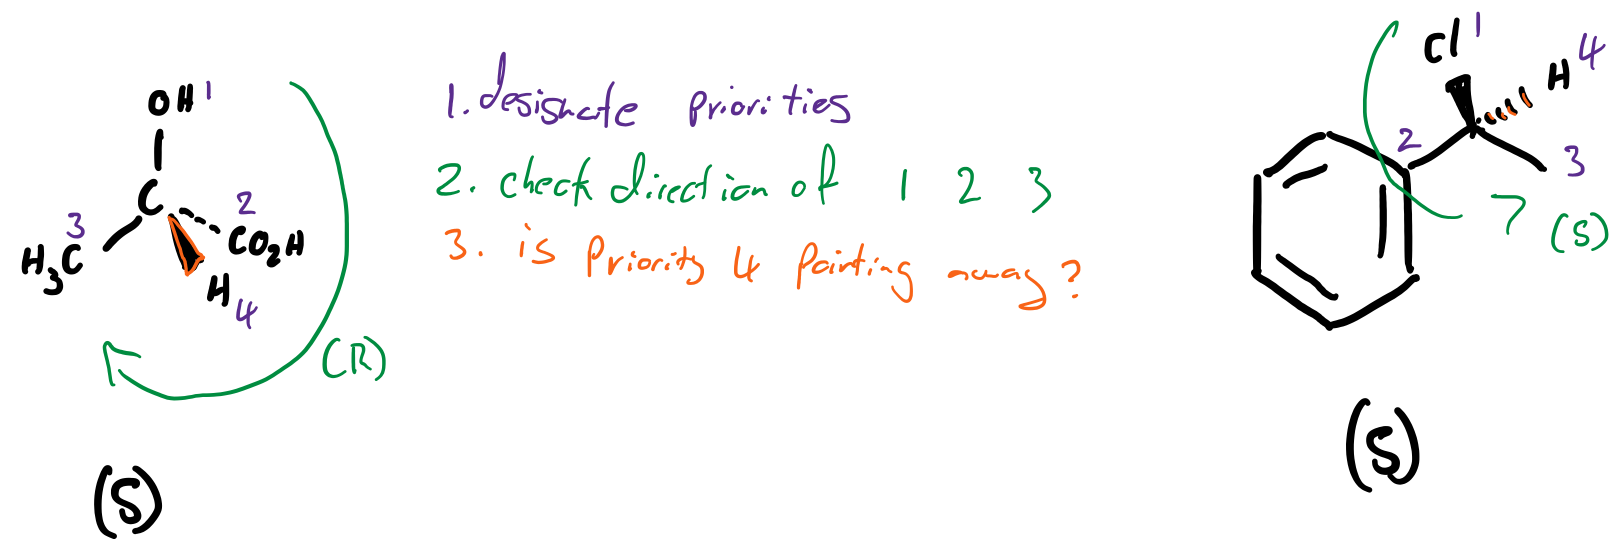 OH 1
C
3
H₃C
2
CO₂H
H
4
(R)
(S)
1. designate priorities
2. check direction of 1 2 3
3. is Priority 4 Pointing away?
Cl 1
H 4
2
3
(S)
(S)